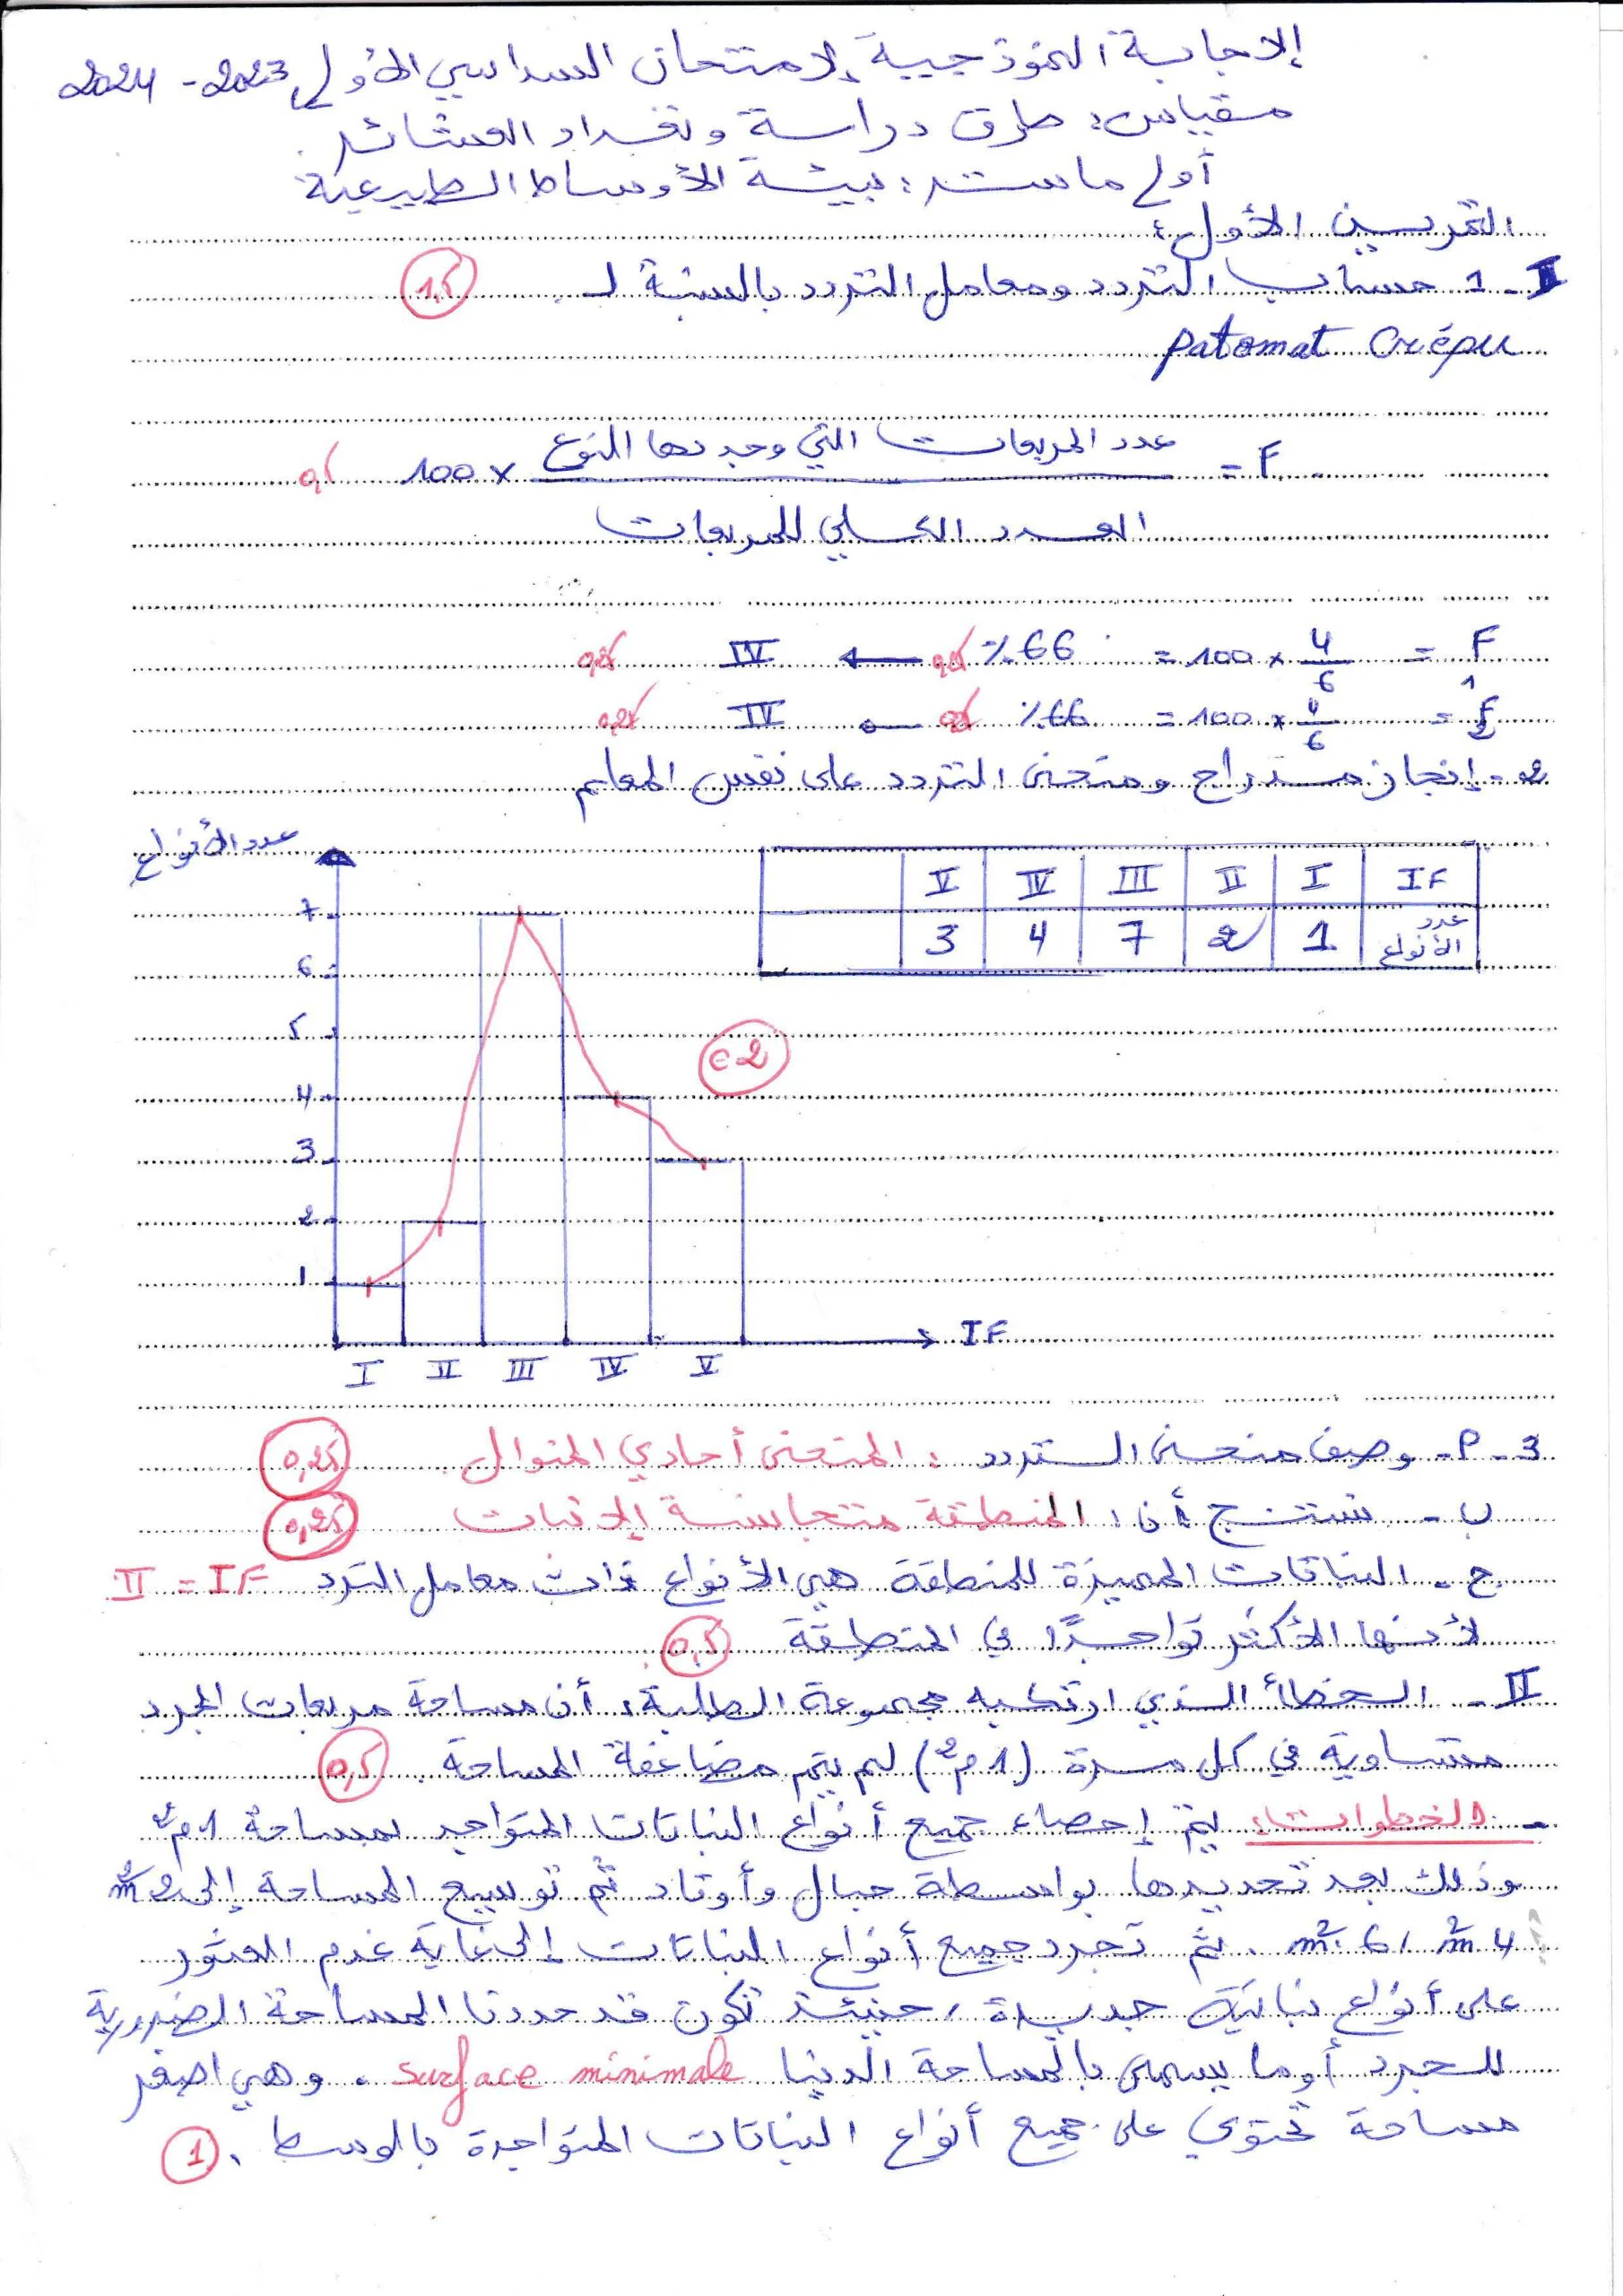 الإجابة النموذجية لإمتحان السداسي الأول 2023 - 2024
مقياس: طرق دراسة وتعداد العشائر.
أولى ماستر: بيئة الأوساط الطبيعية
التمرين الأول:
I - 1 حساب التردد ومعامل التردد بالنسبة لـ 1,5
Patomat Crépu
F = عدد المربعات التي وجد بها النوع × 100 0,5
العدد الكلي للمربعات
F1 = 4/6 × 100 = 66 % 0,25 ← IV 0,25
F2 = 4/6 × 100 = 66 % 0,25 ← IV 0,25
2 - إنجاز مدراج ومنحنى التردد على نفس المعلم
IF I II III IV V
عدد الأنواع 1 2 7 4 3
عدد الأنواع
7
6
5
4
3
2
1
02
I II III IV V IF
3 - أ - وصف منحنى التردد : المنحنى أحادي المنوال 0,25
ب - نستنتج أن: المنطقة متجانسة الإنبات 0,25
ج - النباتات المميزة للمنطقة هي الأنواع ذات معامل التردد II = IF
لأنها الأكثر تواجدًا في المنطقة 0,5
II - الخطأ الذي ارتكبه مجموعة الطلبة: أن مساحة مربعات الجرد
متساوية في كل مرة (1 م²) لم يتم مضاعفة المساحة 0,5
- الخطوات: يتم إحصاء جميع أنواع النباتات المتواجد بمساحة 1 م²
وذلك بعد تحديدها بواسطة حبال وأوتاد ثم توسيع المساحة إلى 2 m²
4 m² ، 6 m² . ثم تجرد جميع أنواع النباتات إلى غاية عدم العثور
على أنواع نباتية جديدة ، حينئذ نكون قد حددنا المساحة الضرورية
للجرد أو ما يسمى بالمساحة الدنيا surface minimale . وهي اصغر
مساحة تحتوي على جميع أنواع النباتات المتواجدة بالوسط . 1